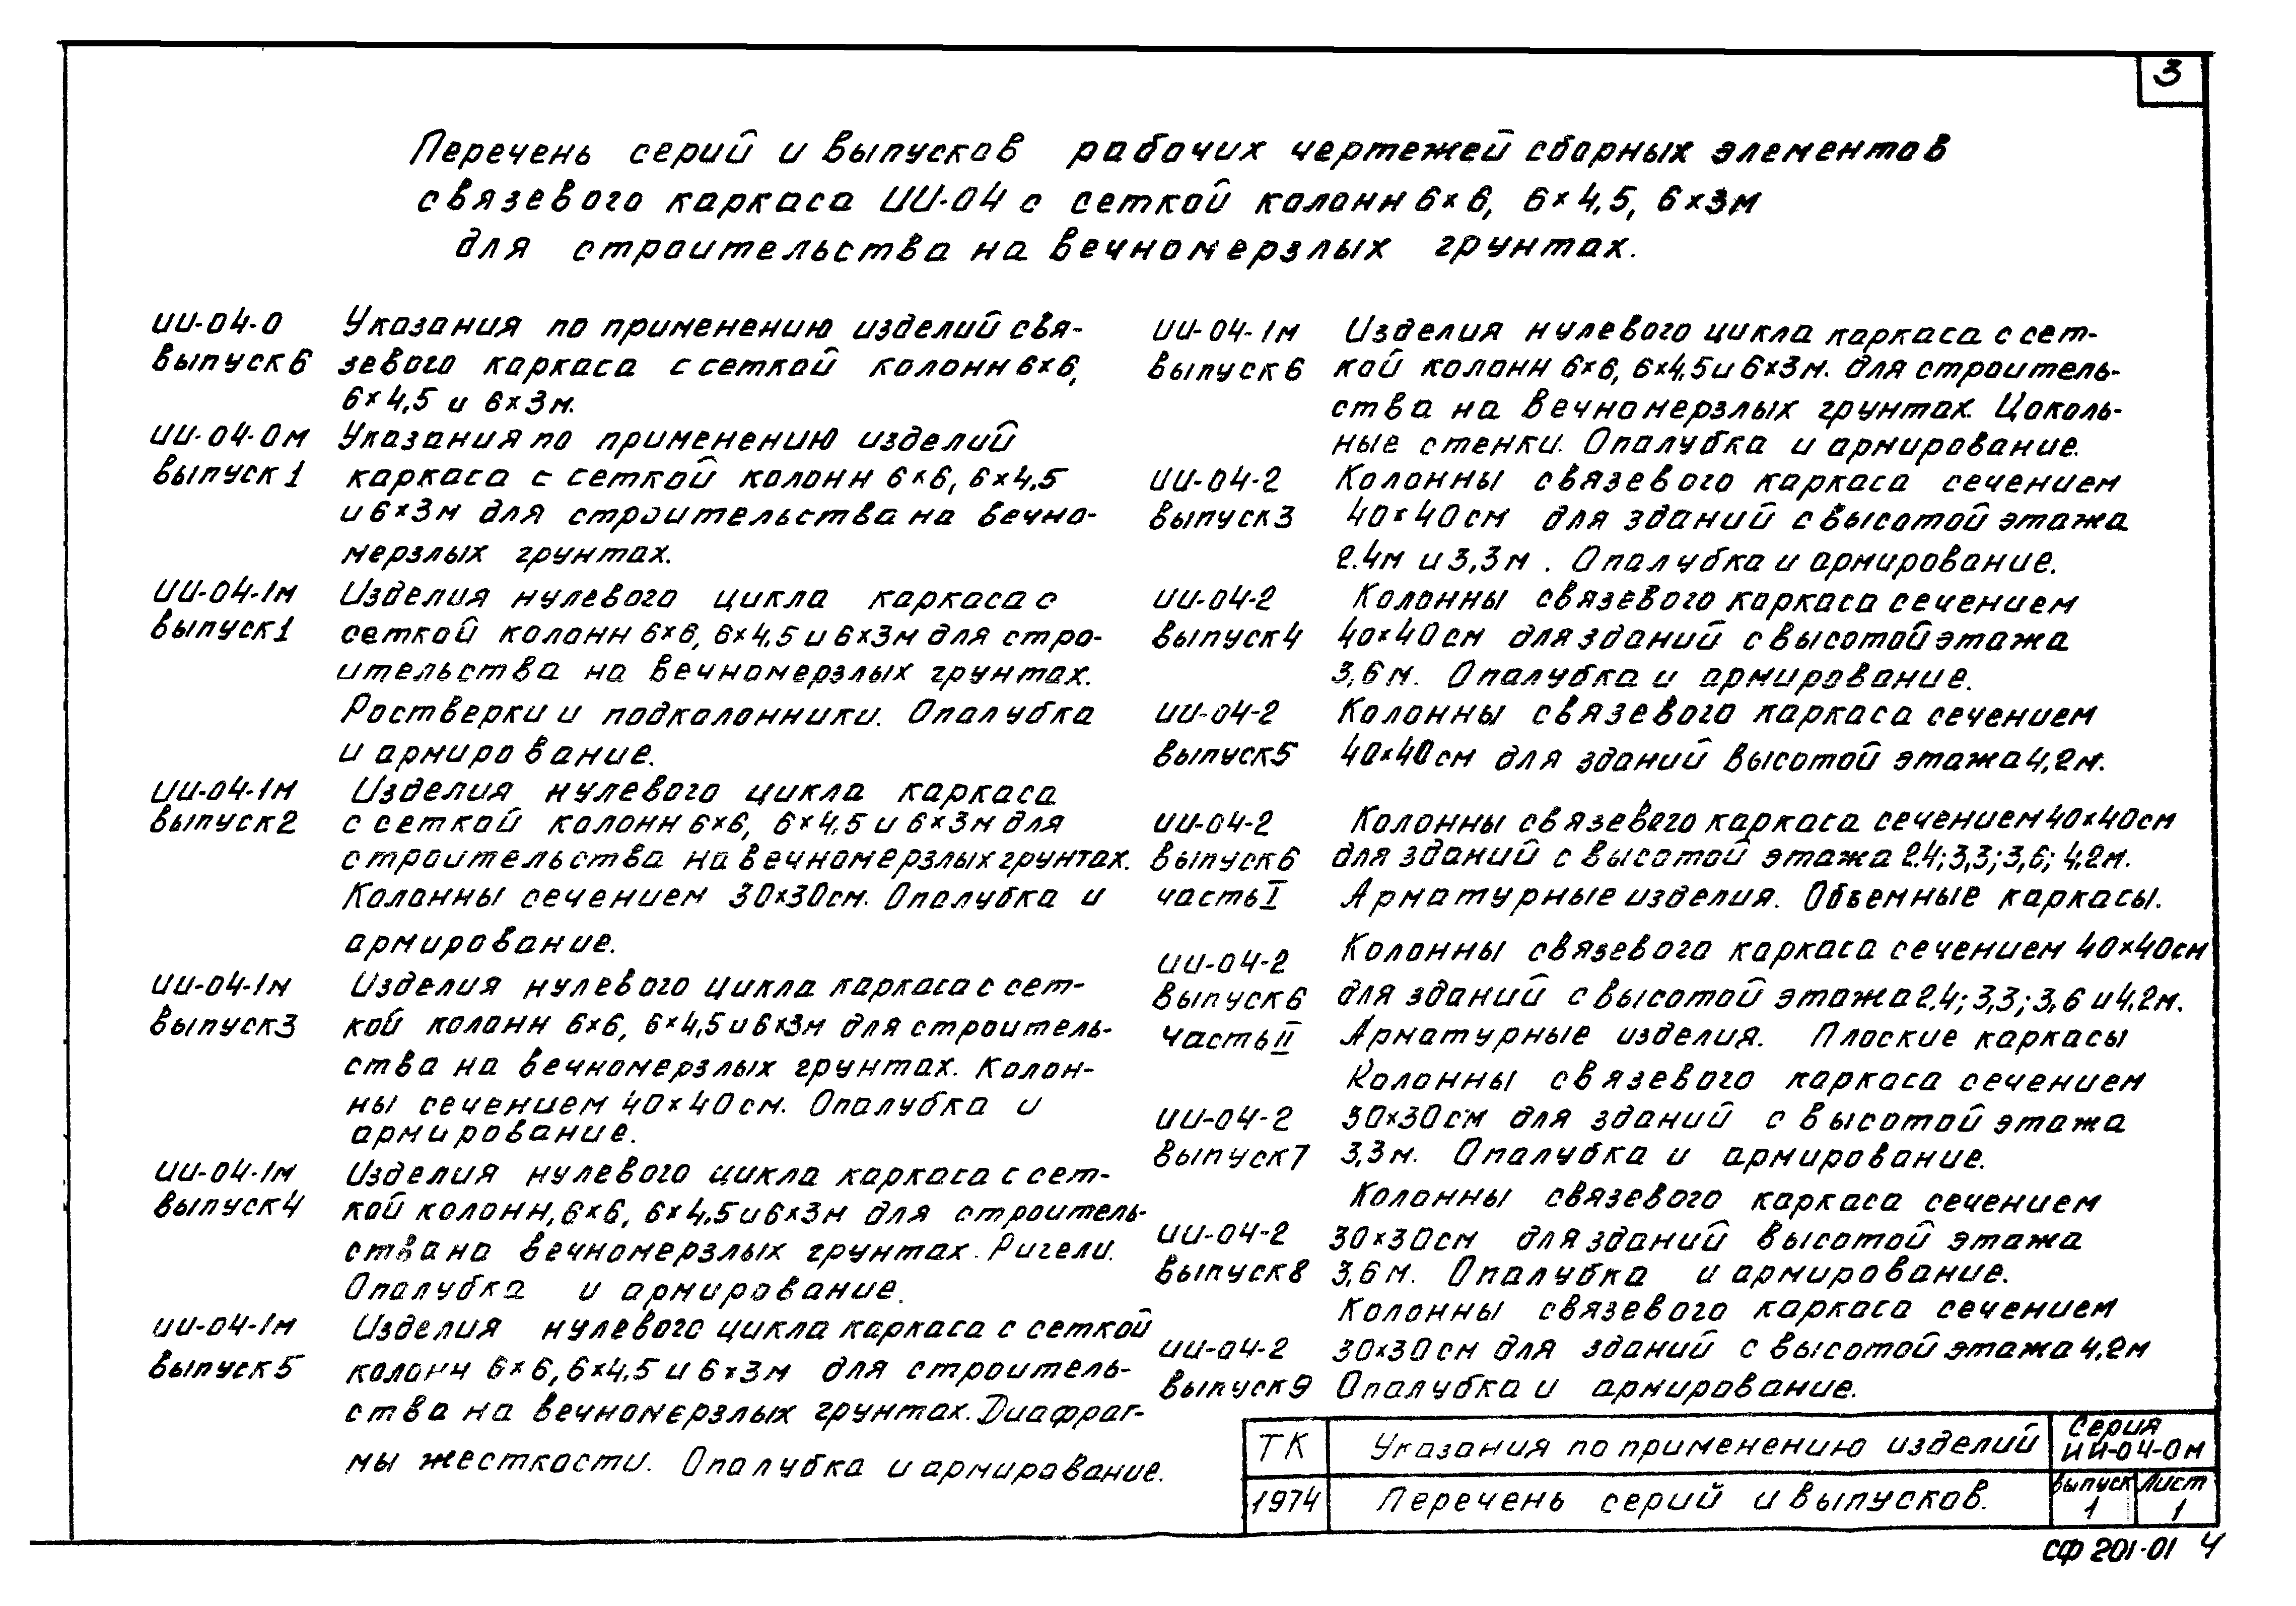 3
Перечень серий и выпусков рабочих чертежей сборных элементов
связевого каркаса ИИ-04 с сеткой колонн 6×6, 6×4,5, 6×3м
для строительства на вечномерзлых грунтах.
ИИ-04-0 Указания по применению изделий свя-
выпуск 6 зевого каркаса с сеткой колонн 6×6,
6×4,5 и 6×3м.
ИИ-04-0м Указания по применению изделий
выпуск 1 каркаса с сеткой колонн 6×6, 6×4,5
и 6×3м для строительства на вечно-
мерзлых грунтах.
ИИ-04-1м Изделия нулевого цикла каркаса с
выпуск 1 сеткой колонн 6×6, 6×4,5 и 6×3м для стро-
ительства на вечномерзлых грунтах.
Ростверки и подколонники. Опалубка
и армирование.
ИИ-04-1м Изделия нулевого цикла каркаса
выпуск 2 с сеткой колонн 6×6, 6×4,5 и 6×3м для
строительства на вечномерзлых грунтах.
Колонны сечением 30×30см. Опалубка и
армирование.
ИИ-04-1м Изделия нулевого цикла каркаса с сет-
выпуск 3 кой колонн 6×6, 6×4,5 и 6×3м для строитель-
ства на вечномерзлых грунтах. Колон-
ны сечением 40×40см. Опалубка и
армирование.
ИИ-04-1м Изделия нулевого цикла каркаса с сет-
выпуск 4 кой колонн, 6×6, 6×4,5 и 6×3м для строитель-
ства на вечномерзлых грунтах. Ригели.
Опалубка и армирование.
ИИ-04-1м Изделия нулевого цикла каркаса с сеткой
выпуск 5 колонн 6×6, 6×4,5 и 6×3м для строитель-
ства на вечномерзлых грунтах. Диафраг-
мы жесткости. Опалубка и армирование.
ИИ-04-1м Изделия нулевого цикла каркаса с сет-
выпуск 6 кой колонн 6×6, 6×4,5 и 6×3м. для строитель-
ства на вечномерзлых грунтах. Цоколь-
ные стенки. Опалубка и армирование.
ИИ-04-2 Колонны связевого каркаса сечением
выпуск 3 40×40см для зданий с высотой этажа
2.4м и 3,3м. Опалубка и армирование.
ИИ-04-2 Колонны связевого каркаса сечением
выпуск 4 40×40см для зданий с высотой этажа
3,6м. Опалубка и армирование.
ИИ-04-2 Колонны связевого каркаса сечением
выпуск 5 40×40см для зданий высотой этажа 4,2м.
ИИ-04-2 Колонны связевого каркаса сечением 40×40см
выпуск 6 для зданий с высотой этажа 2.4; 3,3; 3,6; 4,2м.
часть I Арматурные изделия. Объемные каркасы.
Колонны связевого каркаса сечением 40×40см
ИИ-04-2
выпуск 6 для зданий с высотой этажа 2,4; 3,3; 3,6 и 4,2м.
часть II Арматурные изделия. Плоские каркасы
Колонны связевого каркаса сечением
ИИ-04-2 30×30см для зданий с высотой этажа
выпуск 7 3,3м. Опалубка и армирование.
Колонны связевого каркаса сечением
ИИ-04-2 30×30см для зданий высотой этажа
выпуск 8 3,6м. Опалубка и армирование.
Колонны связевого каркаса сечением
ИИ-04-2 30×30см для зданий с высотой этажа 4,2м
выпуск 9 Опалубка и армирование.
ТК Указания по применению изделий
Серия
ИИ-04-0м
1974 Перечень серий и выпусков.
Выпуск Лист
1 1
СФ 201-01 4